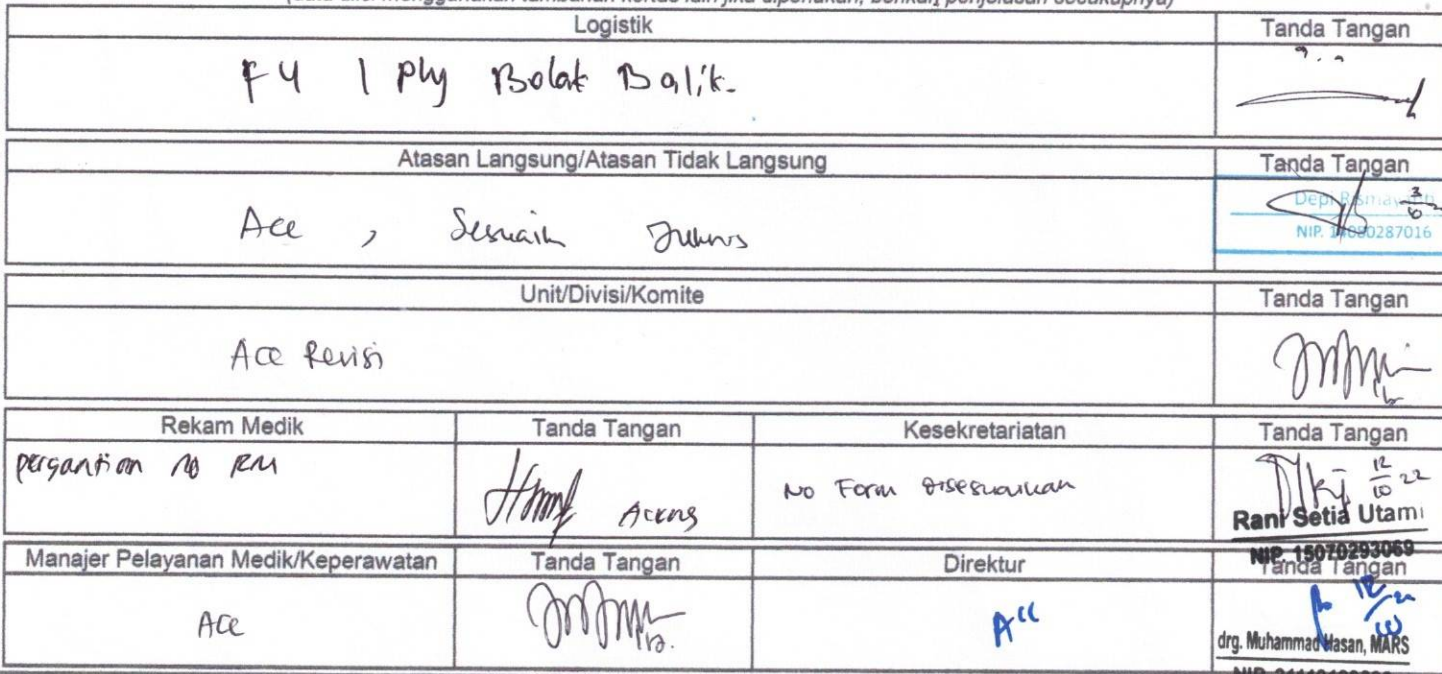 Logistik Tanda Tangan
F4 1 Ply Bolak Balik.
Atasan Langsung/Atasan Tidak Langsung Tanda Tangan
Acc , Sesuain
NIP. 14080287016
Unit/Divisi/Komite Tanda Tangan
Acc Revisi
Rekam Medik Tanda Tangan Kesekretariatan Tanda Tangan
pergantian no RM
No Form disesuaikan
12/10 22
Rani Setia Utami
NIP. 15070293069
Manajer Pelayanan Medik/Keperawatan Tanda Tangan Direktur Tanda Tangan
Acc
Acc
drg. Muhammad Hasan, MARS